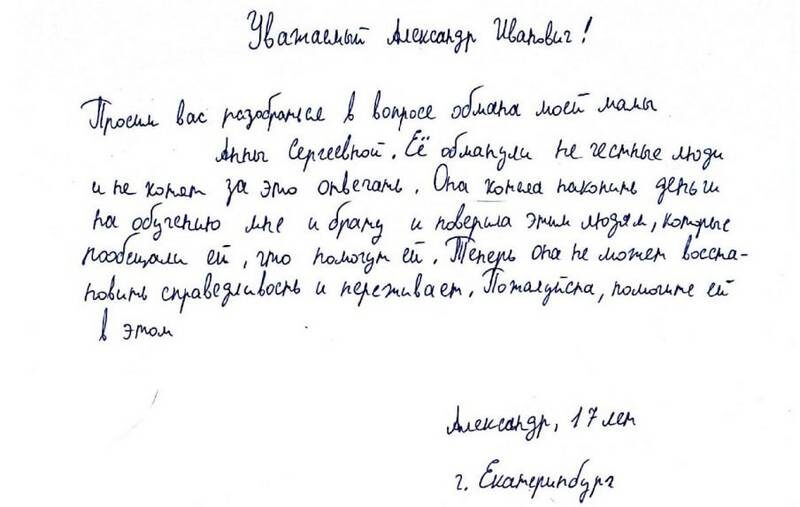 Уважаемый Александр Иванович!
Просим вас разобраться в вопросе обмана моей мамы
Анны Сергеевной. Её обманули не честные люди
и не хотят за это отвечать. Она хотела накопить деньги
на обучению мне и брату и поверила этим людям, которые
пообещали ей, что помогут ей. Теперь она не может восста-
новить справедливость и переживает. Пожалуйста, помогите ей
в этом
Александр, 17 лет
г. Екатеринбург